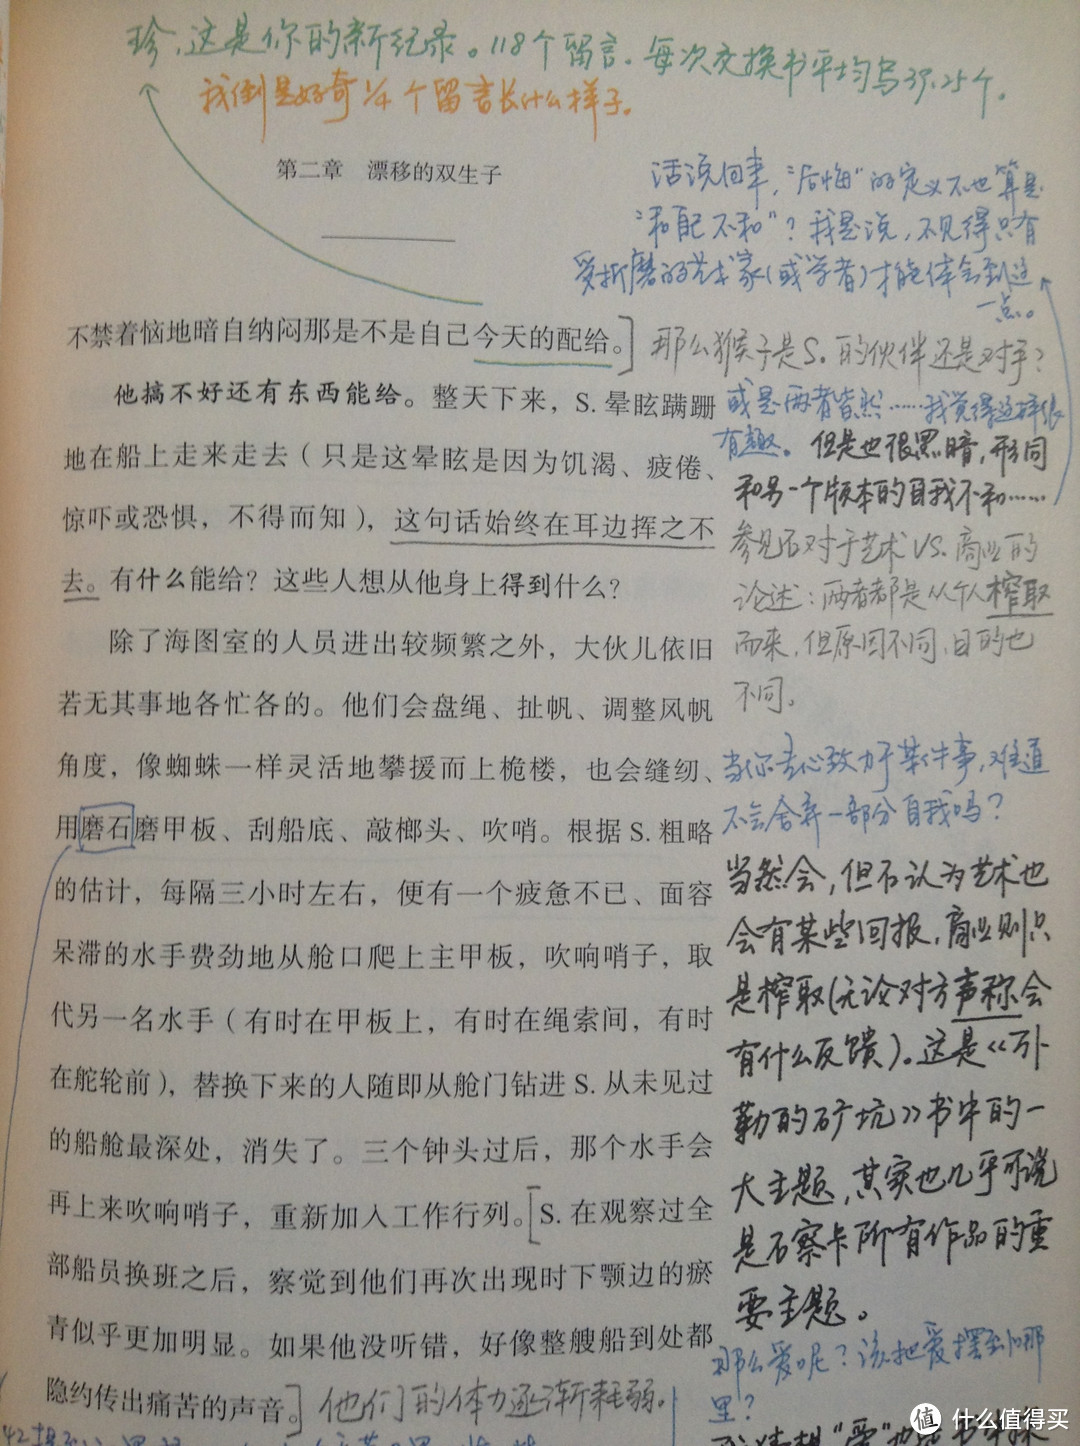 珍,这是你的新纪录。118个留言。每次交换书平均写39.25个。
我倒是好奇1/4个留言长什么样子。
第二章 漂移的双生子
话说回来,“后悔”的定义不也算是
“和自己不和”?我是说,不见得只有
受折磨的艺术家(或学者)才能体会到这
一点。
不禁着恼地暗自纳闷那是不是自己今天的配给。
那么猴子是S.的伙伴还是对手?
他搞不好还有东西能给。整天下来,S.晕眩蹒跚
地在船上走来走去(只是这晕眩是因为饥渴、疲倦、
惊吓或恐惧,不得而知),这句话始终在耳边挥之不
去。有什么能给?这些人想从他身上得到什么?
或是两者皆然……我觉得这样很
有趣。但是也很黑暗,形同
和另一个版本的自我不和……
参见石对于艺术VS.商业的
论述:两者都是从个人榨取
而来,但原因不同,目的也
不同。
除了海图室的人员进出较频繁之外,大伙儿依旧
若无其事地各忙各的。他们会盘绳、扯帆、调整风帆
角度,像蜘蛛一样灵活地攀援而上桅楼,也会缝纫、
用磨石磨甲板、刮船底、敲榔头、吹哨。根据S.粗略
的估计,每隔三小时左右,便有一个疲惫不已、面容
呆滞的水手费劲地从舱口爬上主甲板,吹响哨子,取
代另一名水手(有时在甲板上,有时在绳索间,有时
在舵轮前),替换下来的人随即从舱门钻进S.从未见过
的船舱最深处,消失了。三个钟头过后,那个水手会
再上来吹响哨子,重新加入工作行列。S.在观察过全
部船员换班之后,察觉到他们再次出现时下颚边的瘀
青似乎更加明显。如果他没听错,好像整艘船到处都
隐约传出痛苦的声音。
当你专心致力于某件事,难道
不会舍弃一部分自我吗?
当然会,但石认为艺术也
会有某些回报,商业则只
是榨取(无论对方声称会
有什么反馈)。这是《万卜
勒的矿坑》书中的一
大主题,其实也几乎可说
是石察卡所有作品的重
要主题。
那么爱呢?该把爱摆到哪
里?
他们的体力逐渐耗弱。
值 什么值得买